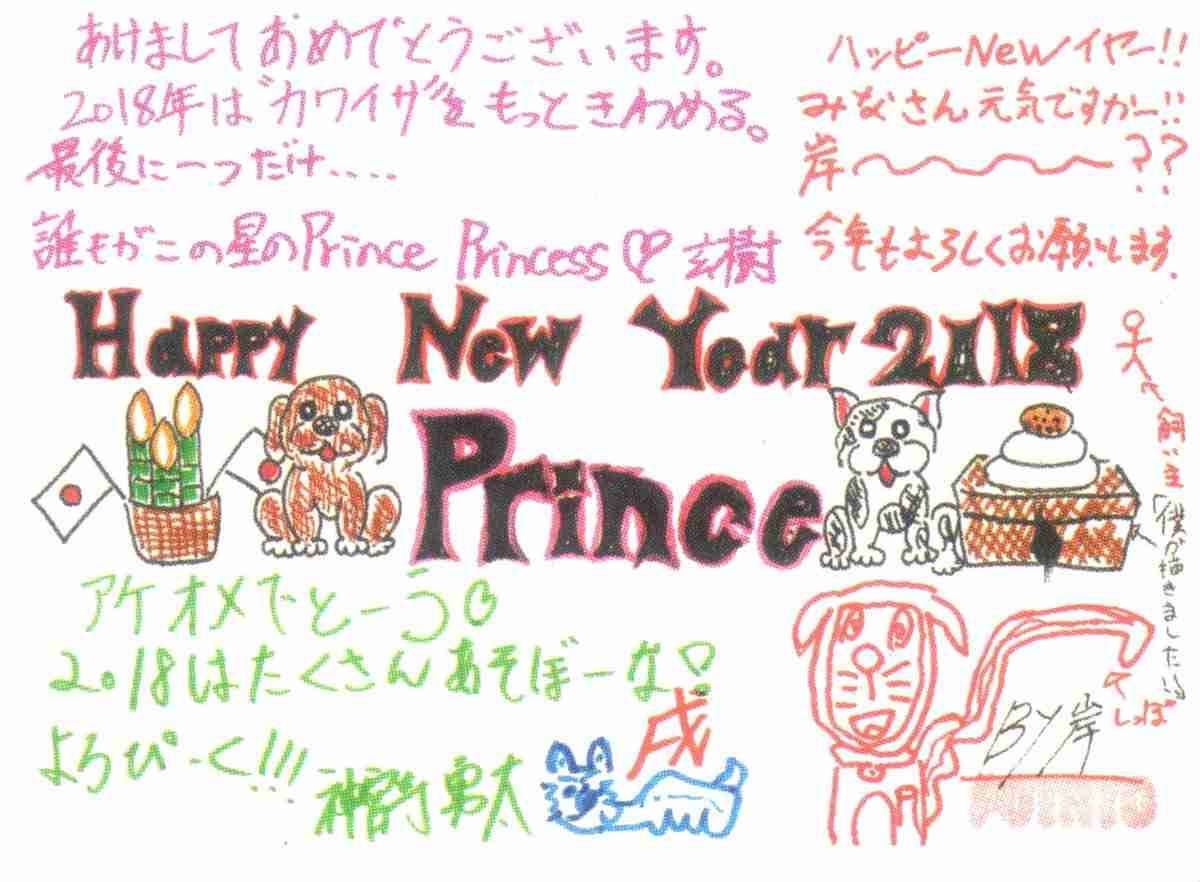 あけましておめでとうございます。
2018年は"カワイザ"をもっときわめる。
最後に一つだけ....
誰もがこの星のPrince Princess♡玄樹
ハッピーNewイヤー!!
みなさん元気ですかー!!
岸〜〜〜〜??
今年もよろしくお願いします。
Happy New Year 2018
Prince
飼い主
「僕が描きました」
アケオメでとーう
2018はたくさんあそぼーな!
よろぴーく!!!
神宮寺勇太
戌
しっぽ
BY岸